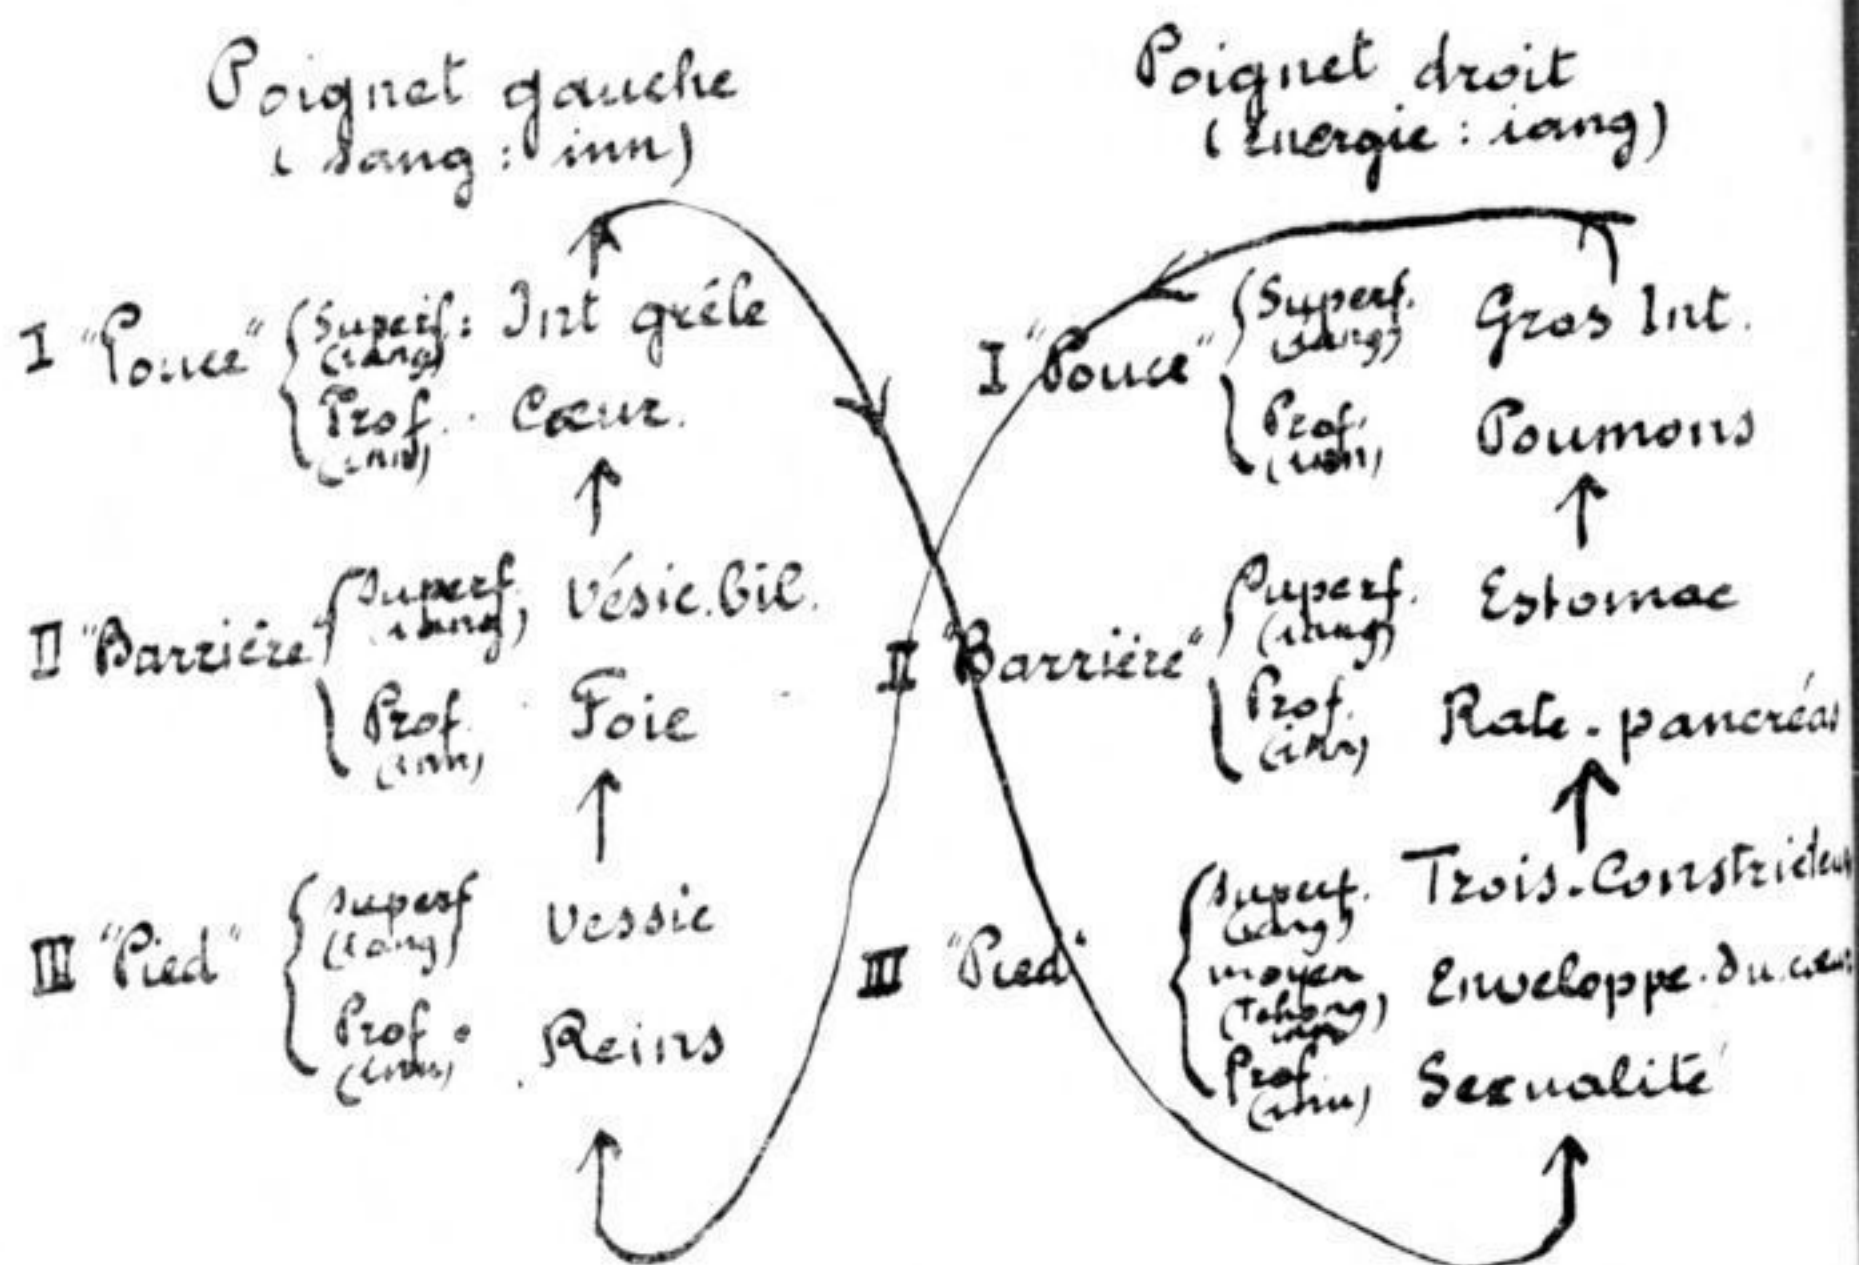 Poignet gauche
(sang : inn)
I "Pouce" Superf : Int grêle
(iang)
Prof. Cœur.
(inn)
II "Barrière" Superf. Vésic. bil.
(iang)
Prof. Foie
(inn)
III "Pied" Superf Vessie
(iang)
Prof. Reins
(inn)
Poignet droit
(Energie : iang)
I "Pouce" Superf. Gros Int.
(iang)
Prof. Poumons
(inn)
II "Barrière" Superf. Estomac
(iang)
Prof. Rate-pancréas
(inn)
III "Pied" Superf. Trois-Constricteurs
(iang)
moyen Enveloppe-du-cœur
(Tchong
Prof. Sexualité
(inn)